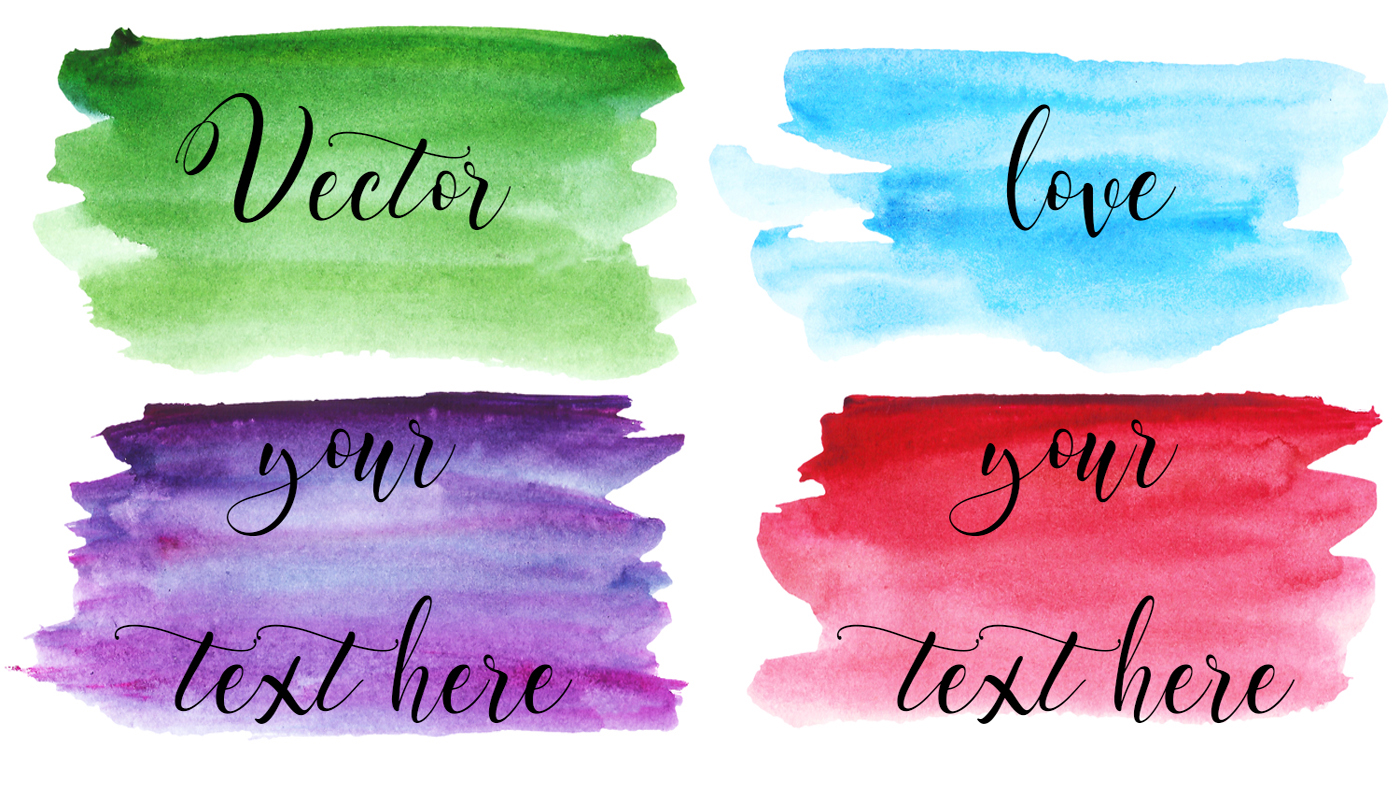 Vector
love
your
text here
your
text here